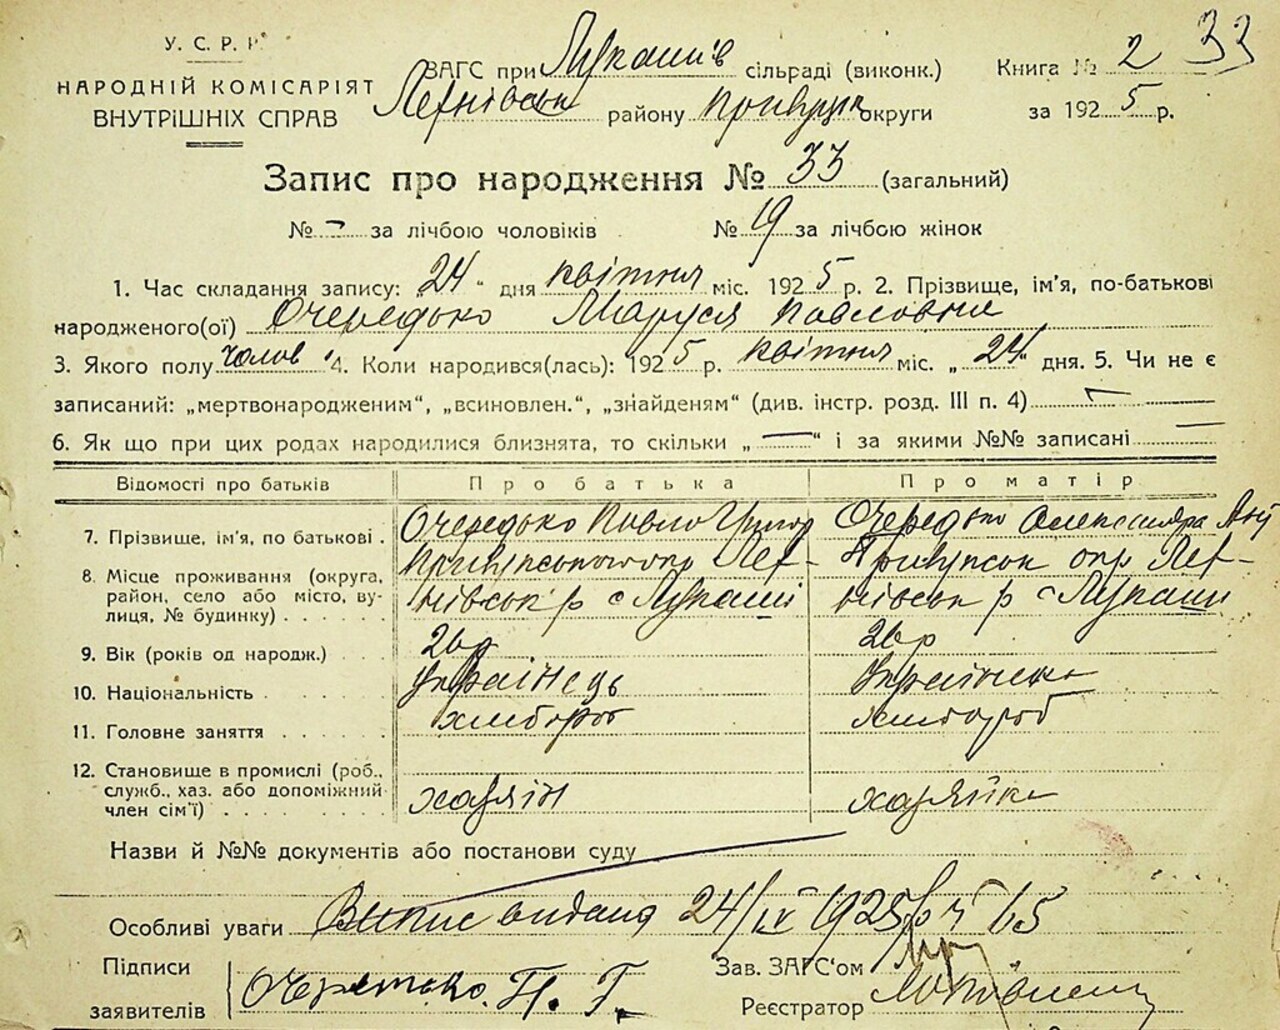 У. С. Р. Р.
НАРОДНІЙ КОМІСАРІЯТ
ВНУТРІШНІХ СПРАВ
ЗАГС при Лукашів сільраді (виконк.)
району округи
Книга № 2 33
за 1925 р.
Запис про народження № 33 (загальний)
№ - за лічбою чоловіків № 19 за лічбою жінок
1. Час складання запису: „24“ дня квітня міс. 1925 р. 2. Прізвище, ім'я, по-батькові
народженого(ої) Очередько Маруся Павловна
3. Якого полу чолов 4. Коли народився(лась): 1925 р. квітня міс. „24“ дня. 5. Чи не є
записаний: „мертвонародженим“, „всиновлен.“, „знайденям“ (див. інстр. розд. III п. 4) —
6. Як що при цих родах народилися близнята, то скільки „—“ і за якими №№ записані —
Відомості про батьків Про батька Про матір
7. Прізвище, ім'я, по батькові . Очередько Павло Григор Очередько Олександра
8. Місце проживання (округа, район, село або місто, вулиця, № будинку) . . . . . р с Лукаші р с Лукаши
9. Вік (років од народж.) . . . 26 р 26 р
10. Національність . . . . . Українець Українка
11. Головне заняття . . . . . хлібороб хлібороб
12. Становище в промислі (роб., служб., хаз. або допоміжний член сім'ї) . . . . . . . хазяїн хазяйка
Назви й №№ документів або постанови суду
Особливі уваги Випис видана 24/IV 1925 р № 65
Підписи
заявителів Очеретько. П. Г.
Зав. ЗАГС'ом
Реєстратор